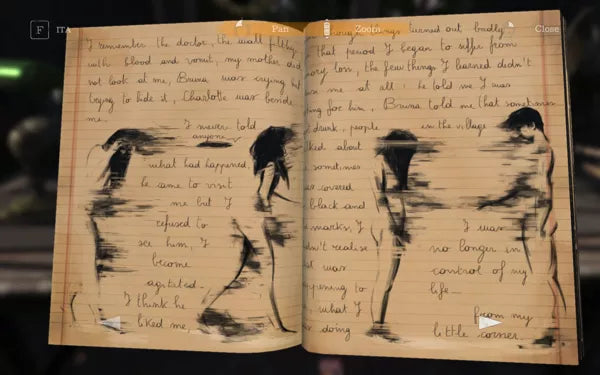 F ITA
Pan
Zoom
Close
I remember the doctor, the wall filthy
with blood and vomit, my mother did
not look at me, Bruna was crying but
trying to hide it, Charlotte was beside
me.
I never told
anyone
what had happened,
he came to visit
me but I
refused to
see him, I
become
agitated.
I think he
liked me,
turned out badly
that period I began to suffer from
loss, the few things I learned didn't
me at all: he told me I was
for him, Bruna told me that sometimes
drunk, people in the village
about
sometimes
covered
black and
marks, I
realise
was
to
what I
doing
I was
no longer in
control of my
life—
from my
little corner